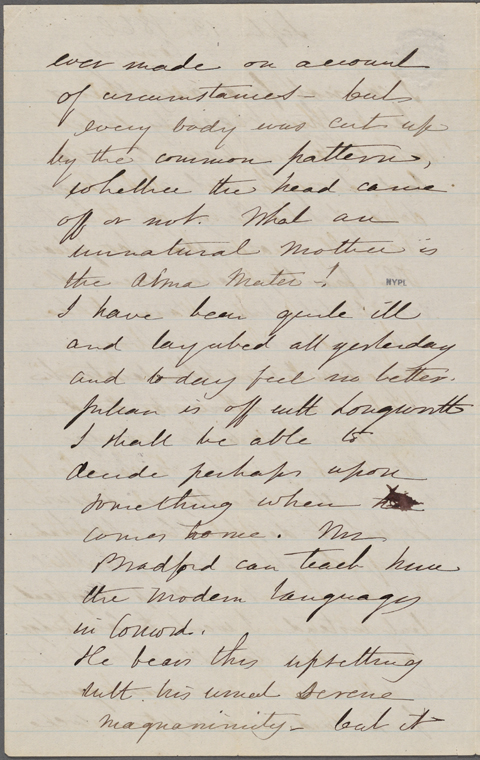 ever made on account
of circumstances - but
every body was cut up
by the common pattern,
whether the head came
off or not. What an
unnatural Mother is
the Alma Mater - !
NYPL
I have been quite ill
and lay abed all yesterday
and to day feel no better.
Julian is off with Longworth
I shall be able to
decide perhaps upon
something when
comes home. Mr
Bradford can teach him
the modern languages
in Concord.
He bears this upsetting
with his usual serene
magnanimity - but it